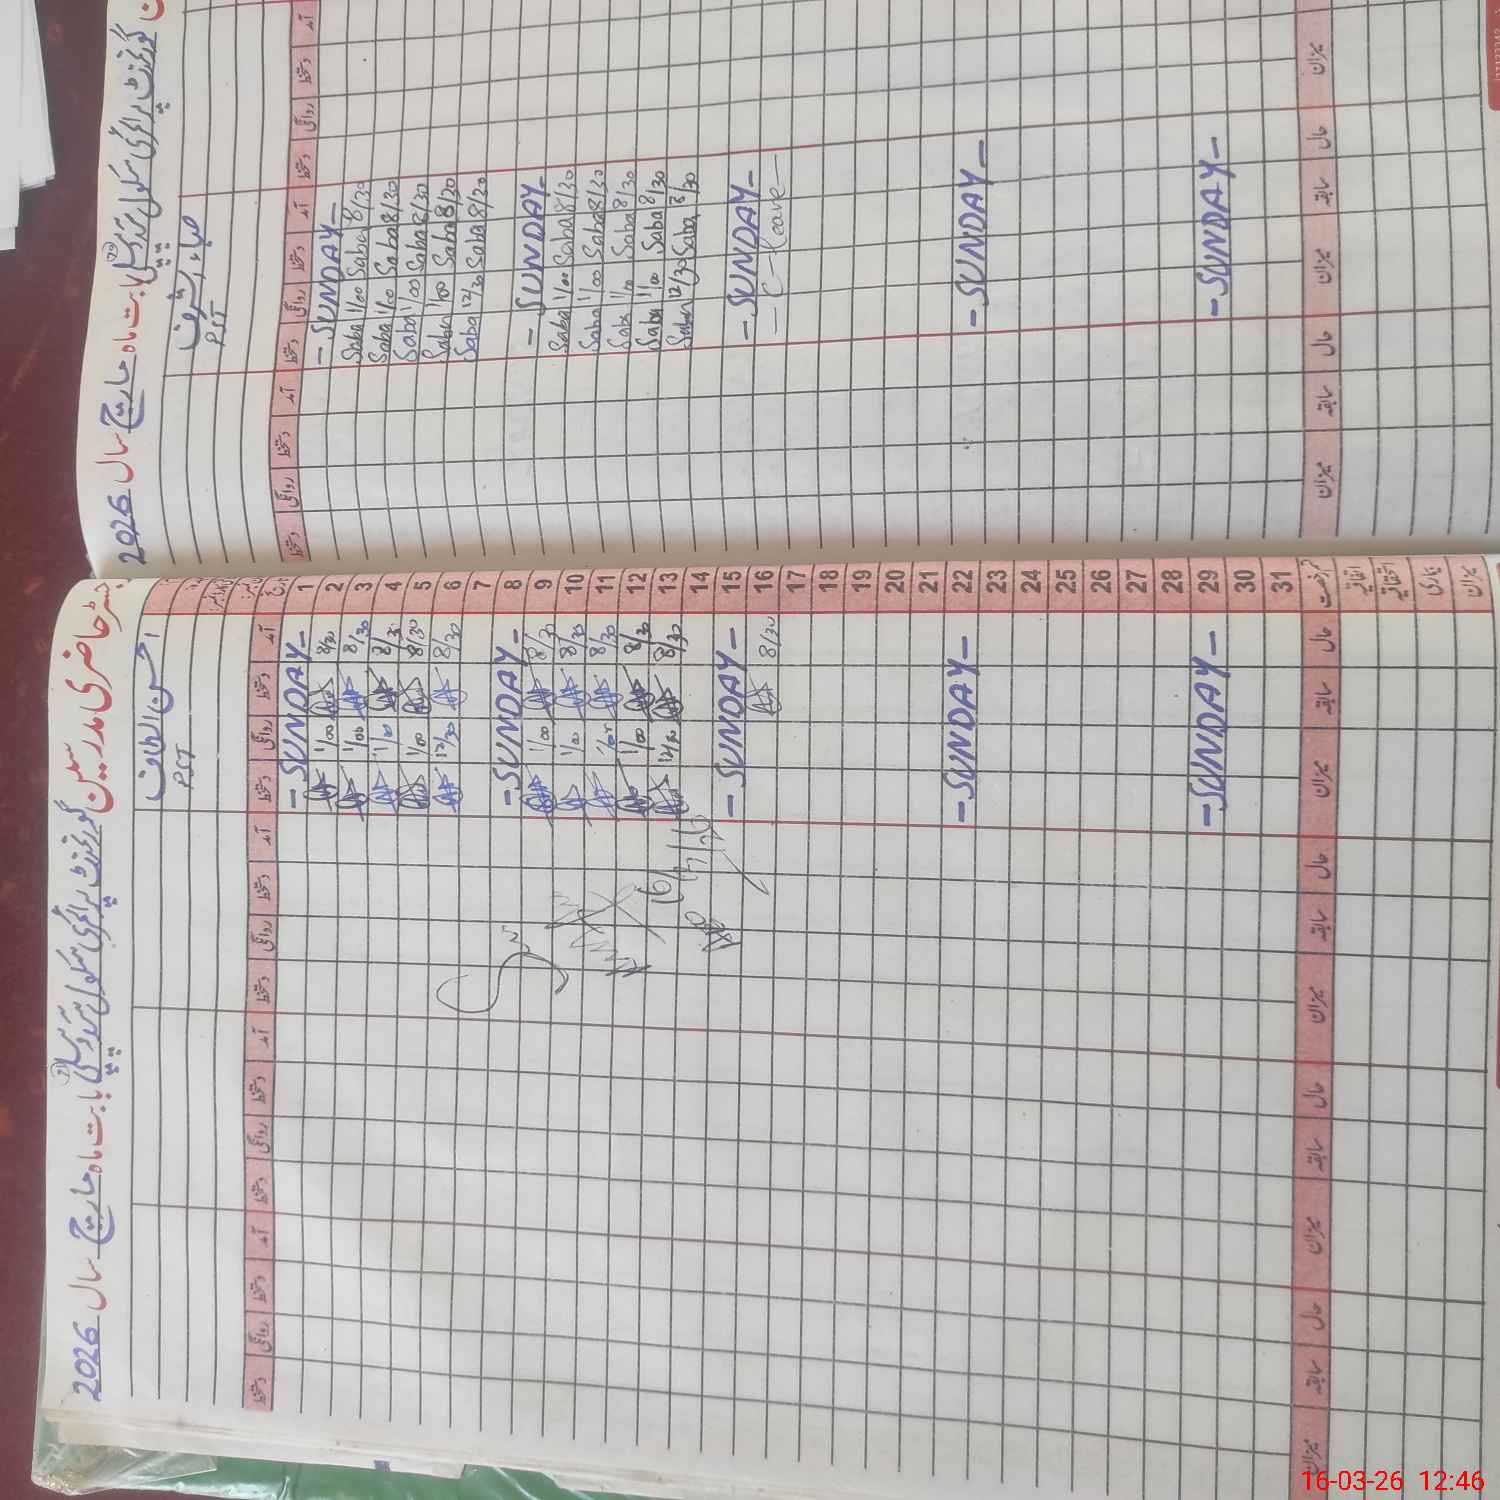 رجسٹر حاضری مدرسین گورنمنٹ پرائمری سکول بابت ماہ مارچ سال 2026
احسن الطاف
PST
آمد دستخط روانگی دستخط آمد دستخط روانگی دستخط آمد دستخط روانگی دستخط آمد دستخط روانگی دستخط
1 - SUNDAY -
2 8/30 1/00
3 8/30 1/00
4 8/30 1/00
5 8/30 1/00
6 8/30 12/30
7
8 - SUNDAY -
9 8/30 1/00
10 8/30 1/00
11 8/30 1/00
12 8/30 1/00
13 8/30 12/30
14
15 - SUNDAY -
16 8/30
17
18
19
20
21
22 - SUNDAY -
23
24
25
26
27
28
29 - SUNDAY -
30
31
حال سابقہ میزان حال سابقہ میزان حال سابقہ میزان حال سابقہ میزان
اتفاقیہ
استحقاقیہ
بیماری
میزان
گورنمنٹ پرائمری سکول بابت ماہ مارچ سال 2026
صباء اشرف
PST
آمد دستخط روانگی دستخط آمد دستخط روانگی دستخط آمد دستخط روانگی دستخط
- SUNDAY -
Saba 1/00 Saba 8/30
Saba 1/00 Saba 8/30
Saba 1/00 Saba 8/30
Saba 1/00 Saba 8/30
Saba 12/30 Saba 8/30
- SUNDAY -
Saba 1/00 Saba 8/30
Saba 1/00 Saba 8/30
Saba 1/00 Saba 8/30
Saba 1/00 Saba 8/30
Saba 12/30 Saba 8/30
- SUNDAY -
- C - leave -
- SUNDAY -
- SUNDAY -
میزان حال سابقہ میزان حال سابقہ میزان
16-03-26 12:46